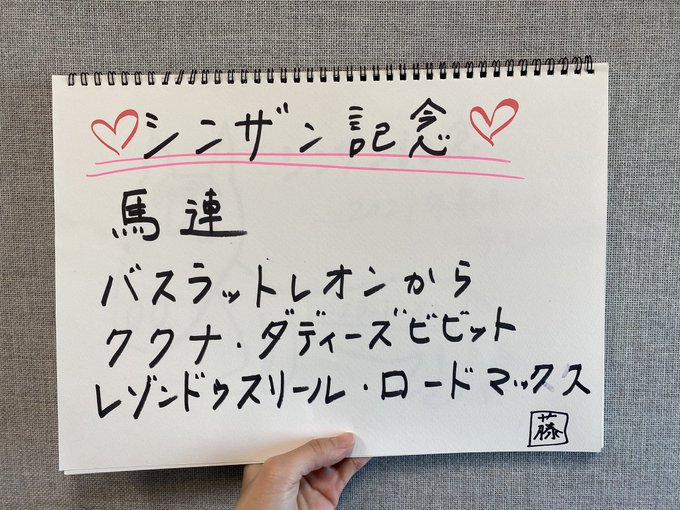 ♡シンザン記念♡
馬連
バスラットレオンから
ククナ・ダディーズビビット
レゾンドゥスリール・ロードマックス
藤